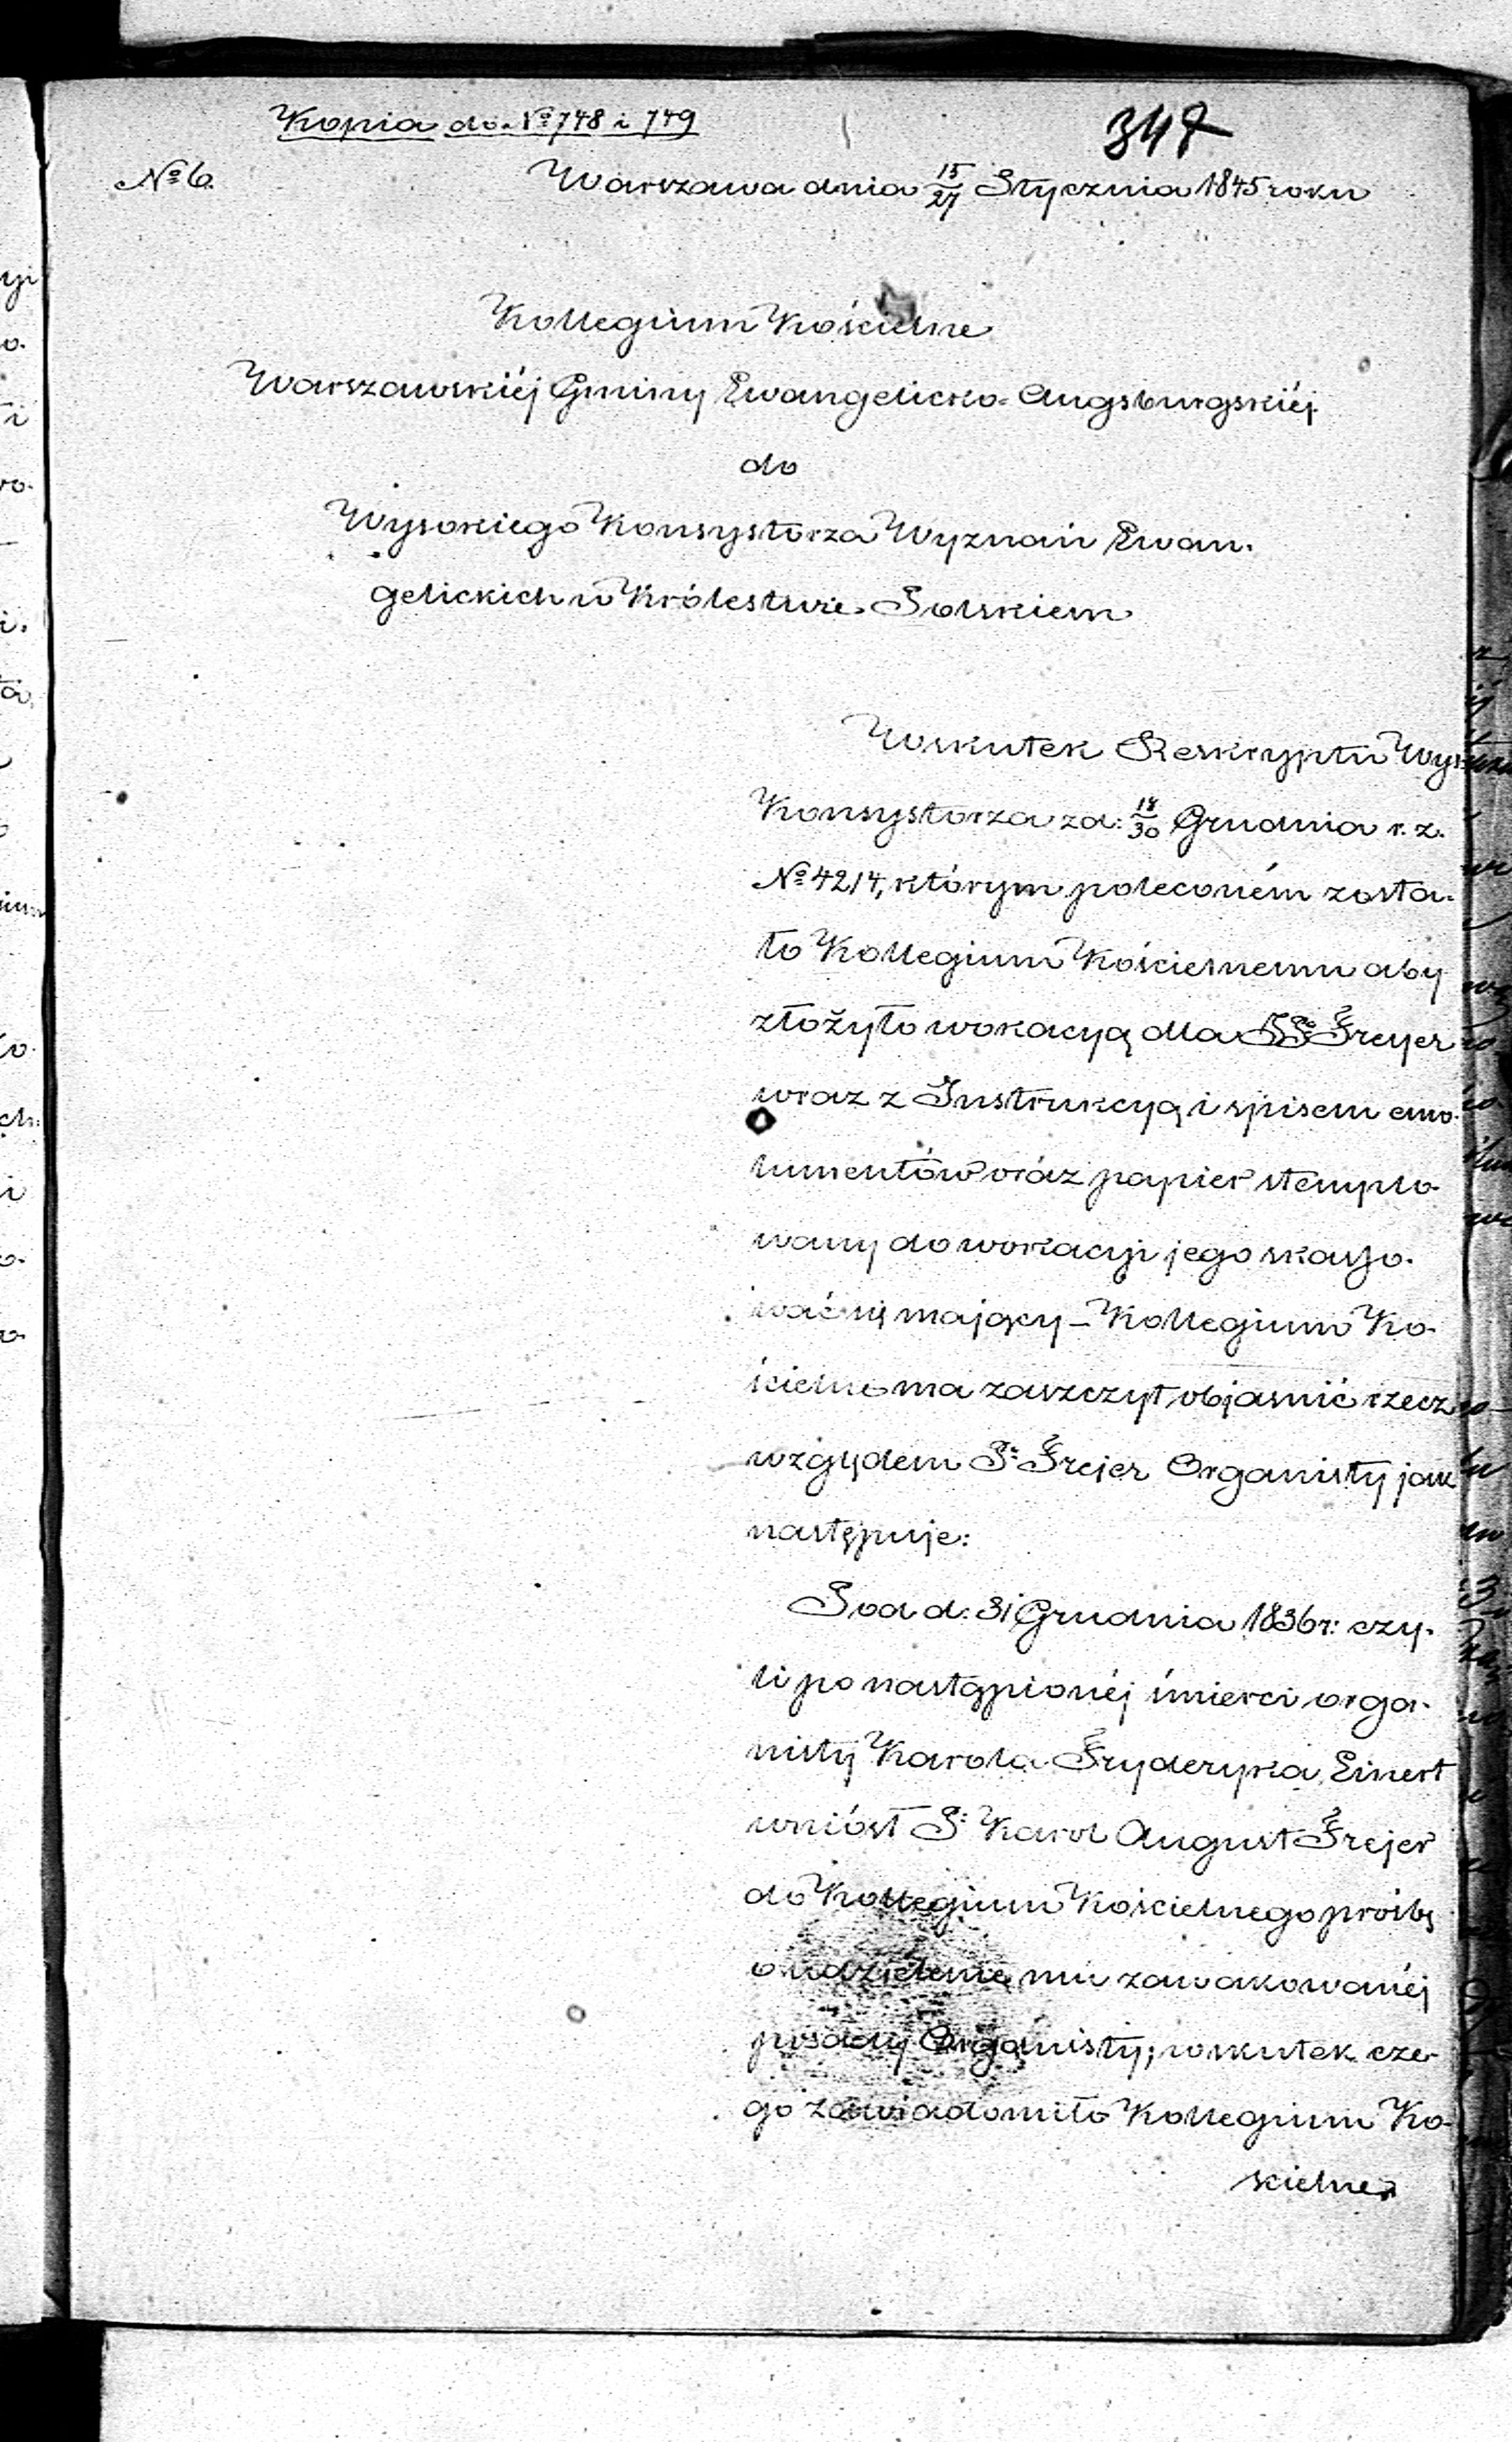 Kopia do Nº 748 i 749
347
Nº 6.
Warszawa dnia 15/27 Stycznia 1845 roku
Kollegium Kościelne
Warszawskiéj Gminy Ewangelicko-Augsburgskiéj
do
Wysokiego Konsystorza Wyznań Ewan-
gelickich w Królestwie Polskiem
Wskutek Reskryptu Wys:
Konsystorza z d: 18/30 Grudnia r. z.
Nº 4214, którym poleconém zosta-
ło Kollegium Kościelnemu aby
złożyło wokacyą dla Freyer
wraz z Instrukcyą i spisem emo-
lumentów oraz papier stemplo-
wany do wokacyi jego skasso-
wać się mający – Kollegium Ko-
ścielne ma zaszczyt objasnić rzecz
względem P: Frejer Organisty jak
następuje:
Pod d: 31 Grudnia 1836 r: czy-
li po nastąpionéj śmierci orga-
nisty Karola Fryderyka Einert
wniósł P: Karol August Frejer
do Kollegium Kościelnego proźbę
o udzielenie mu zawakowanéj
posady Organisty; wskutek cze-
go zawiadomiło Kollegium Ko-
ścielne